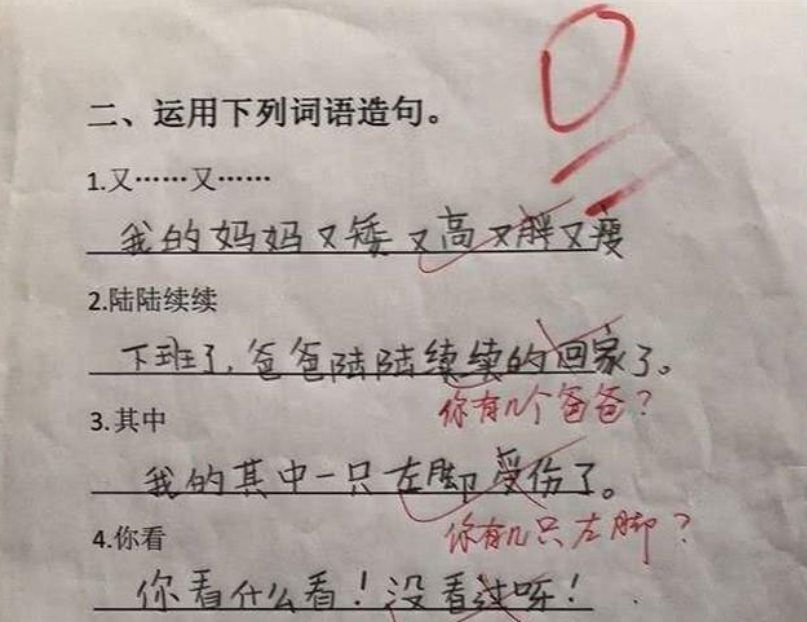 0
二、运用下列词语造句。
1.又……又……
我的妈妈又矮又高又胖又瘦
2.陆陆续续
下班了,爸爸陆陆续续的回家了。
你有几个爸爸？
3.其中
我的其中一只左脚受伤了。
你有几只左脚？
4.你看
你看什么看！没看过呀！